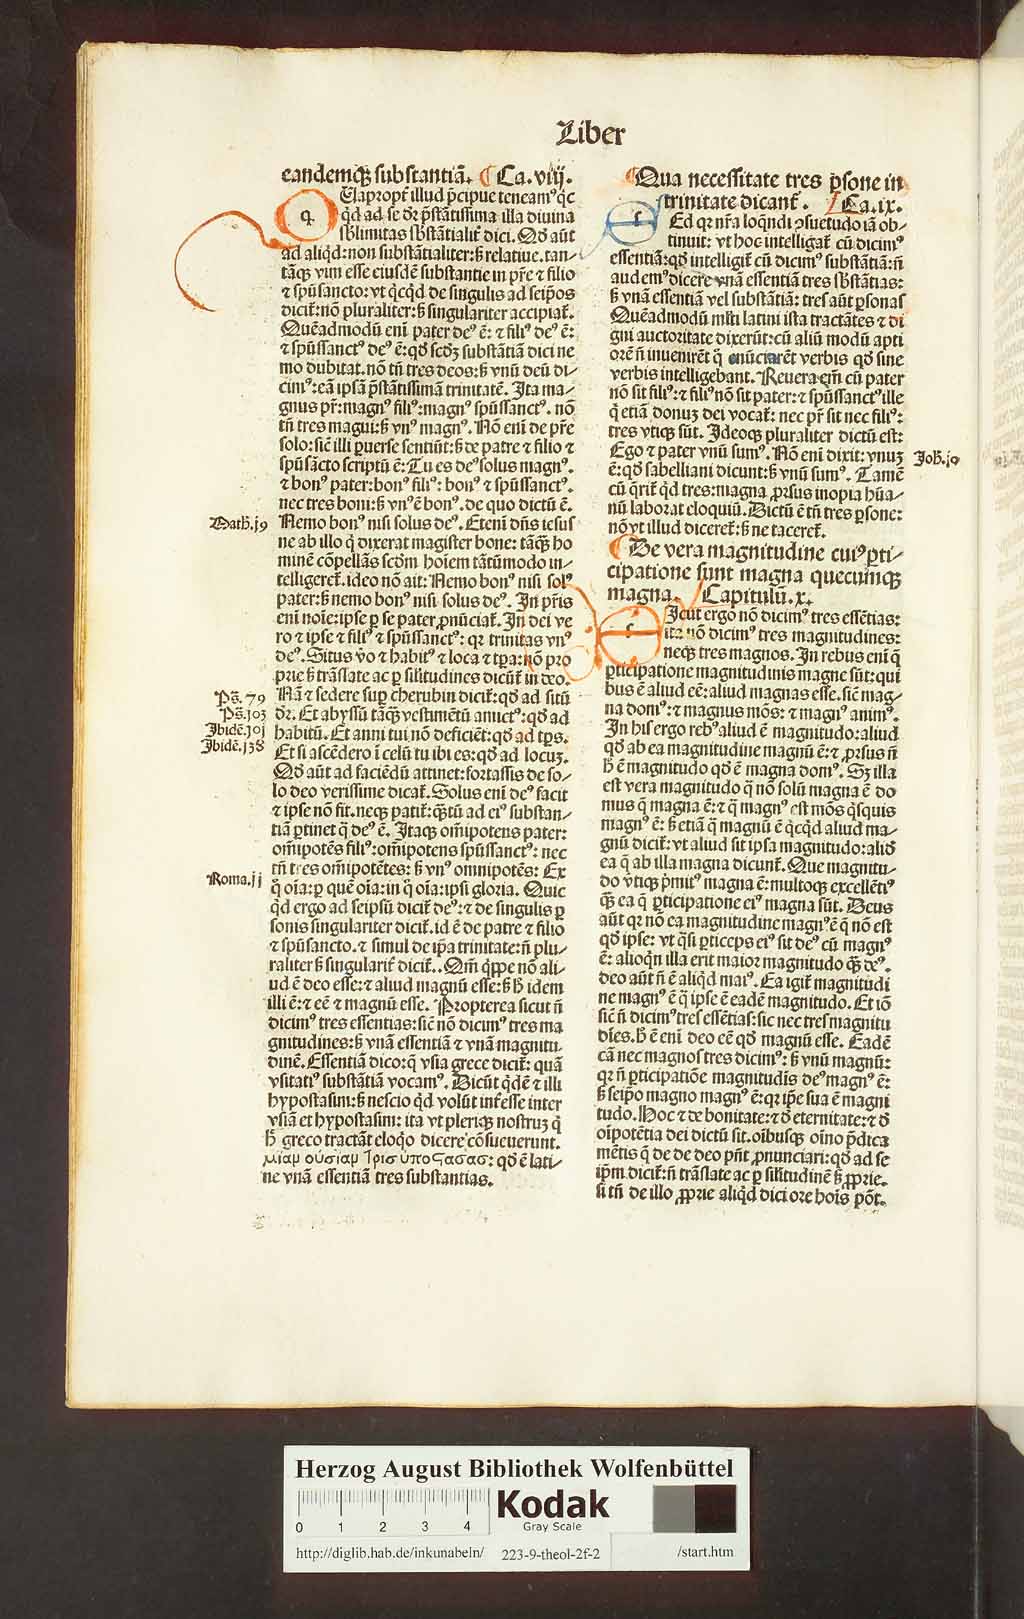 Liber
eandemqꝫ substantiā. Ca. viij.
q
Uapropt̄ illud p̄cipue teneamꝰ q̇c
q̇d ad se dr̄ p̄stātissima illa diuina
sb̄limitas sb̄stātialit̄ dici. Qd̓ aūt
ad aliqd̓: non substātialiter: ß relatiue. tan⸗
tāqꝫ vim esse eiusdē substantie in pr̄e ⁊ filio
⁊ spūsancto: vt q̇cq̇d de singulis ad seip̄os
dicit̄: nō pluraliter: ß singulariter accipiat̄.
Quēadmodū enī pater deꝰ ē: ⁊ filiꝰ deꝰ ē:
⁊ spūssanctꝰ deꝰ ē: qd̓ scd̓ꝫ substātiā dici ne
mo dubitat. nō tn̄ tres deos: ß vnū deū di⸗
cimꝰ: eā ipsā p̄stātissimā trinitatē. Ita ma⸗
gnus pr̄: magnꝰ filiꝰ: magnꝰ spūssanctꝰ. nō
tn̄ tres magni: ß vnꝰ magnꝰ. Nō enī de pr̄e
solo: sic̄ illi ꝑuerse sentiūt: ß de patre ⁊ filio ⁊
spūsācto scriptū ē: Tu es deꝰ solus magnꝰ.
⁊ bonꝰ pater: bonꝰ filiꝰ: bonꝰ ⁊ spūssanctꝰ.
nec tres boni: ß vnꝰ ē bonꝰ. de quo dictū ē.
Math̓. j9
Nemo bonꝰ nisi solus deꝰ. Etenī dn̄s iesus
ne ab illo q̇ dixerat magister bone: tāqꝫ ho
minē cōpellās scd̓m hoīem tātūmodo in⸗
telligeret̄. ideo nō ait: Nemo bonꝰ nisi solꝰ
pater: ß nemo bonꝰ nisi solus deꝰ. In pr̄is
enī noīe: ipse ꝑ se pater ꝓnūciat̄. In dei ve
ro ⁊ ipse ⁊ filiꝰ ⁊ spūssanctꝰ: qꝛ trinitas vnꝰ
deꝰ. Situs v̓o ⁊ habitꝰ ⁊ loca ⁊ tꝑa: nō pro
prie ß trāslate ac ꝑ silītudines dicūt̄ in deo.
Ps̄. 79
Nā ⁊ sedere suꝑ cherubin dicit̄: qd̓ ad sitū
Ps̄. j03
dr̄. Et abyssū tāqꝫ vestimētū amictꝰ: qd̓ ad
Ibidē. j0j
habitū. Et anni tui nō deficiēt: qd̓ ad tp̄s.
Ibidē. j38
Et si ascēdero ī celū tu ibi es: qd̓ ad locuꝫ.
Qd̓ aūt ad faciēdū attinet: fortassis de so⸗
lo deo verissime dicat̄. Solus enī deꝰ facit
⁊ ipse nō fit. neqꝫ patit̄: qꝫtū ad eiꝰ substan⸗
tiā ꝑtinet q̄ deꝰ ē. Itaqꝫ om̄ipotens pater:
om̄ipotēs filiꝰ: om̄ipotens spūssanctꝰ: nec
tn̄ tres om̄ipotētes: ß vnꝰ omnipotēs: Ex
Roma. jj
q̊ oīa: ꝑ quē oīa: in q̊ oīa: ipsi gloria. Quic
q̇d ergo ad seipsū dicit̄ deꝰ: ⁊ de singulis ꝑ
sonis singulariter dicit̄. id ē de patre ⁊ filio
⁊ spūsancto. ⁊ simul de ip̄a trinitate: n̄ plu⸗
raliter ß singularit̄ dicit̄.. Qm̄ q̇ppe nō ali⸗
ud ē deo esse: ⁊ aliud magnū esse: ß h̓ idem
illi ē: ⁊ eē ⁊ magnū esse. Propterea sicut n̄
dicimꝰ tres essentias: sic̄ nō dicimꝰ tres ma
gnitudines: ß vnā essentiā ⁊ vnā magnitu⸗
dinē. Essentiā dico: q̄ vsia grece dicit̄: quā
vsitatiꝰ substātiā vocamꝰ. Dicūt q̇dē ⁊ illi
hypostasim: ß nescio q̇d volūt int̄esse inter
vsiā et hypostasim: ita vt pleriqꝫ nostruꝫ q̇
h̓ greco tractāt eloq̇o dicere cōsueuerunt.
μιαμ ουσιαμ τρισ υποστασασ: qd̓ ē lati⸗
ne vnā essentiā tres substantias.
Qua necessitate tres ꝑsone in
trinitate dicant̄. Ca. ix.
s
Ed qꝛ nr̄a loq̄ndi ꝯsuetudo iā ob⸗
tinuit: vt hoc intelligat̄ cū dicimꝰ
essentiā: qd̓ intelligit̄ cū dicimꝰ substātiā: n̄
audemꝰ dicere vnā essentiā tres sb̄stātias:
ß vnā essentiā vel substātiā: tres aūt ꝑsonas
Quēadmodū ml̄ti latini ista tractātes ⁊ di
gni auctoritate dixerūt: cū aliū modū apti
orē n̄ inuenirēt q̊ enūciarēt verbis qd̓ sine
verbis intelligebant. Reuera em̄ cū pater
nō sit filiꝰ: ⁊ filiꝰ nō sit pater: ⁊ spūssanctꝰ ille
q̇ etiā donuꝫ dei vocat̄: nec pr̄ sit nec filiꝰ:
tres vtiqꝫ sūt. Ideoqꝫ pluraliter dictū est:
Joh̓. j0
Ego ⁊ pater vnū sumꝰ. Nō enī dixit: vnuꝫ
ē: qd̓ sabelliani dicunt: ß vnū sumꝰ. Tamē
cū q̄rit̄ q̇d tres: magna ꝓrsus inopia hūa⸗
nū laborat eloquiū. Dictū ē tn̄ tres ꝑsone:
nō vt illud diceret̄: ß ne taceret̄.
De vera magnitudine cuiꝰ ꝑti⸗
cipatione sunt magna quecunqꝫ
magna. Capitulū. x.
s
Icut ergo nō dicimꝰ tres essētias:
ita nō dicimꝰ tres magnitudines:
neqꝫ tres magnos. In rebus enī q̄
ꝑticipatione magnitudinis magne sūt: qui
bus ē aliud eē: aliud magnas esse. sic̄ mag⸗
na domꝰ: ⁊ magnus mōs: ⁊ magnꝰ animꝰ.
In his ergo rebꝰ aliud ē magnitudo: aliud
qd̓ ab ea magnitudine magnū ē: ⁊ ꝓrsus n̄
h̓ ē magnitudo qd̓ ē magna domꝰ. Sꝫ illa
est vera magnitudo q̄ nō solū magna ē do
mus q̄ magna ē: ⁊ q̇ magnꝰ est mōs q̇squis
magnꝰ ē: ß etiā q̄ magnū ē q̇cq̇d aliud ma⸗
gnū dicit̄: vt aliud sit ipsa magnitudo: aliđ
ea q̄ ab illa magna dicunt̄. Que magnitu⸗
do vtiqꝫ p̓mitꝰ magna ē: multoqꝫ excellētiꝰ
qꝫ ea q̄ ꝑticipatione eiꝰ magna sūt. Deus
aūt qꝛ nō ea magnitudine magnꝰ ē q̄ nō est
qd̓ ipse: vt q̇si ꝑticeps eiꝰ sit deꝰ cū magnꝰ
ē: alioq̇n illa erit maior magnitudo qꝫ deꝰ.
deo aūt n̄ ē aliq̇d maiꝰ. Ea igit̄ magnitudi
ne magnꝰ ē q̄ ipse ē eadē magnitudo. Et iō
sic̄ n̄ dicimꝰ tres essētias: sic nec tres magnitu
dīes. h̓ ē enī deo eē qd̓ magnū esse. Eadē
cā nec magnos tres dicimꝰ: ß vnū magnū:
qꝛ n̄ ꝑticipatiōe magnitudīs deꝰ magnꝰ ē:
ß seip̄o magno magnꝰ ē: qꝛ ip̄e sua ē magni
tudo. Hoc ⁊ de bonitate: ⁊ d̓ eternitate: ⁊ d̓
oīpotētia dei dictū sit. oībusqꝫ oīno p̄dica
mētis q̄ de de deo pn̄t ꝓnunciari: qd̓ ad se
ip̄m dicit̄: n̄ trāslate ac ꝑ silītudinē ß ꝓprie.
si tn̄ de illo ꝓprie aliq̇d dici ore hoīs pōt.
Herzog August Bibliothek Wolfenbüttel
0 1 2 3 4
Kodak
Gray Scale
http://diglib.hab.de/inkunabeln/ 223-9-theol-2f-2 /start.htm